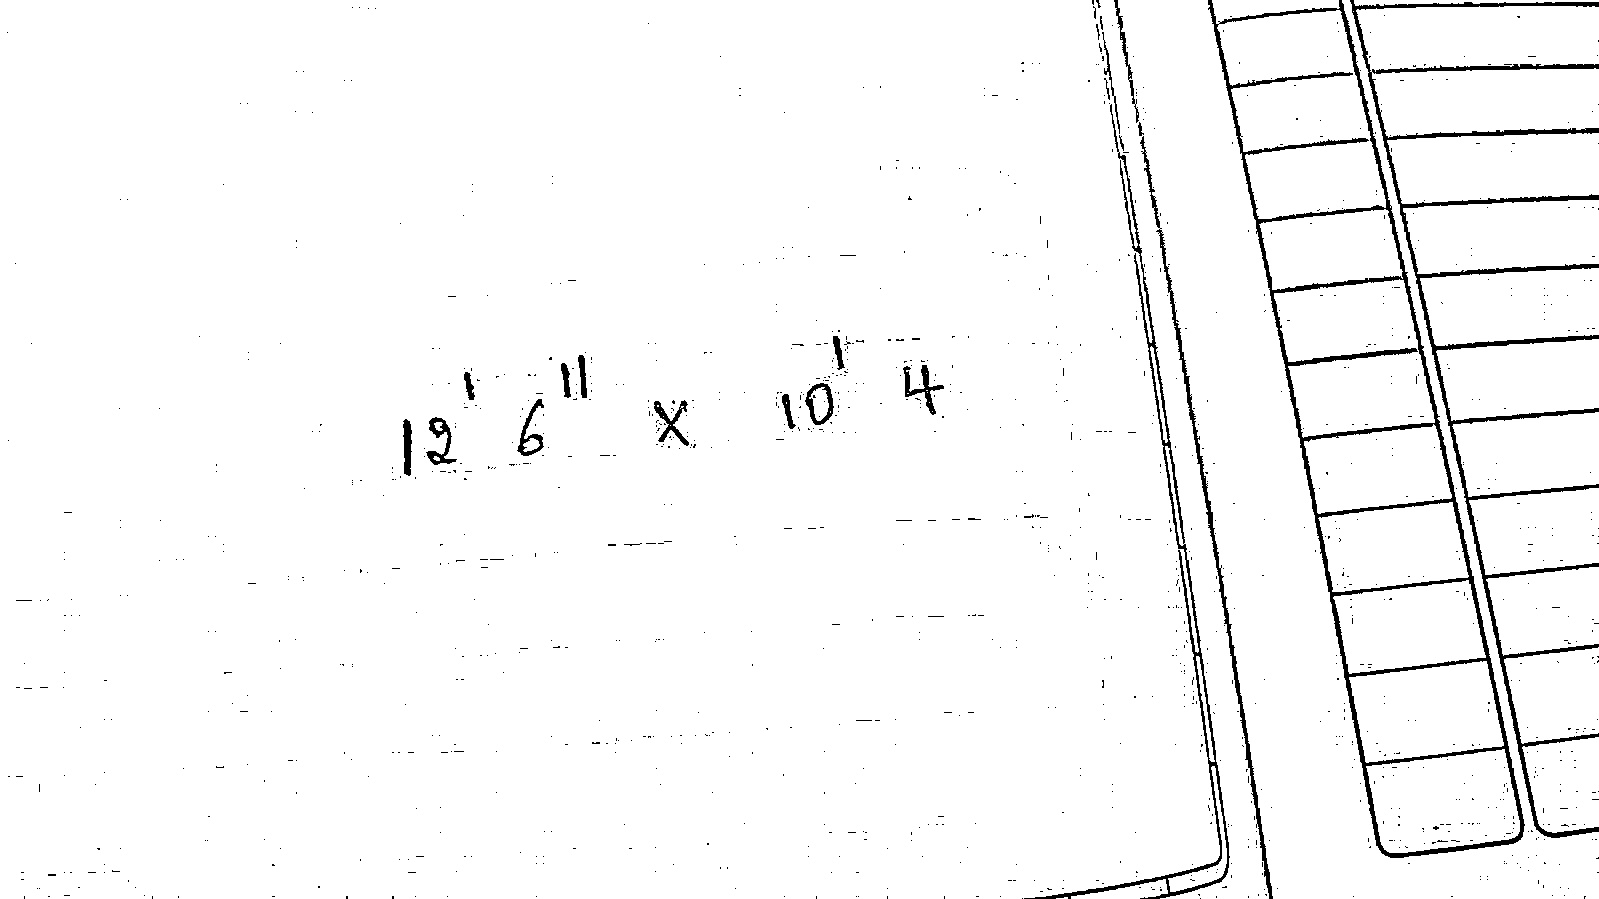 12' 6" x 10' 4